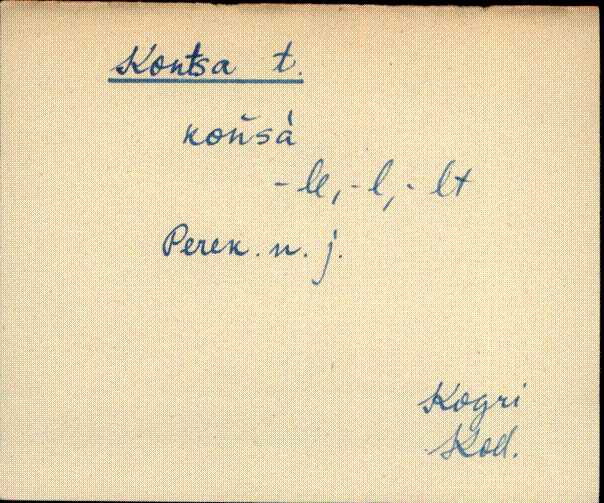 Kontsa t.
koñsà
-le, -l, -lt
Perek. n. j.
Kogri
Kod.